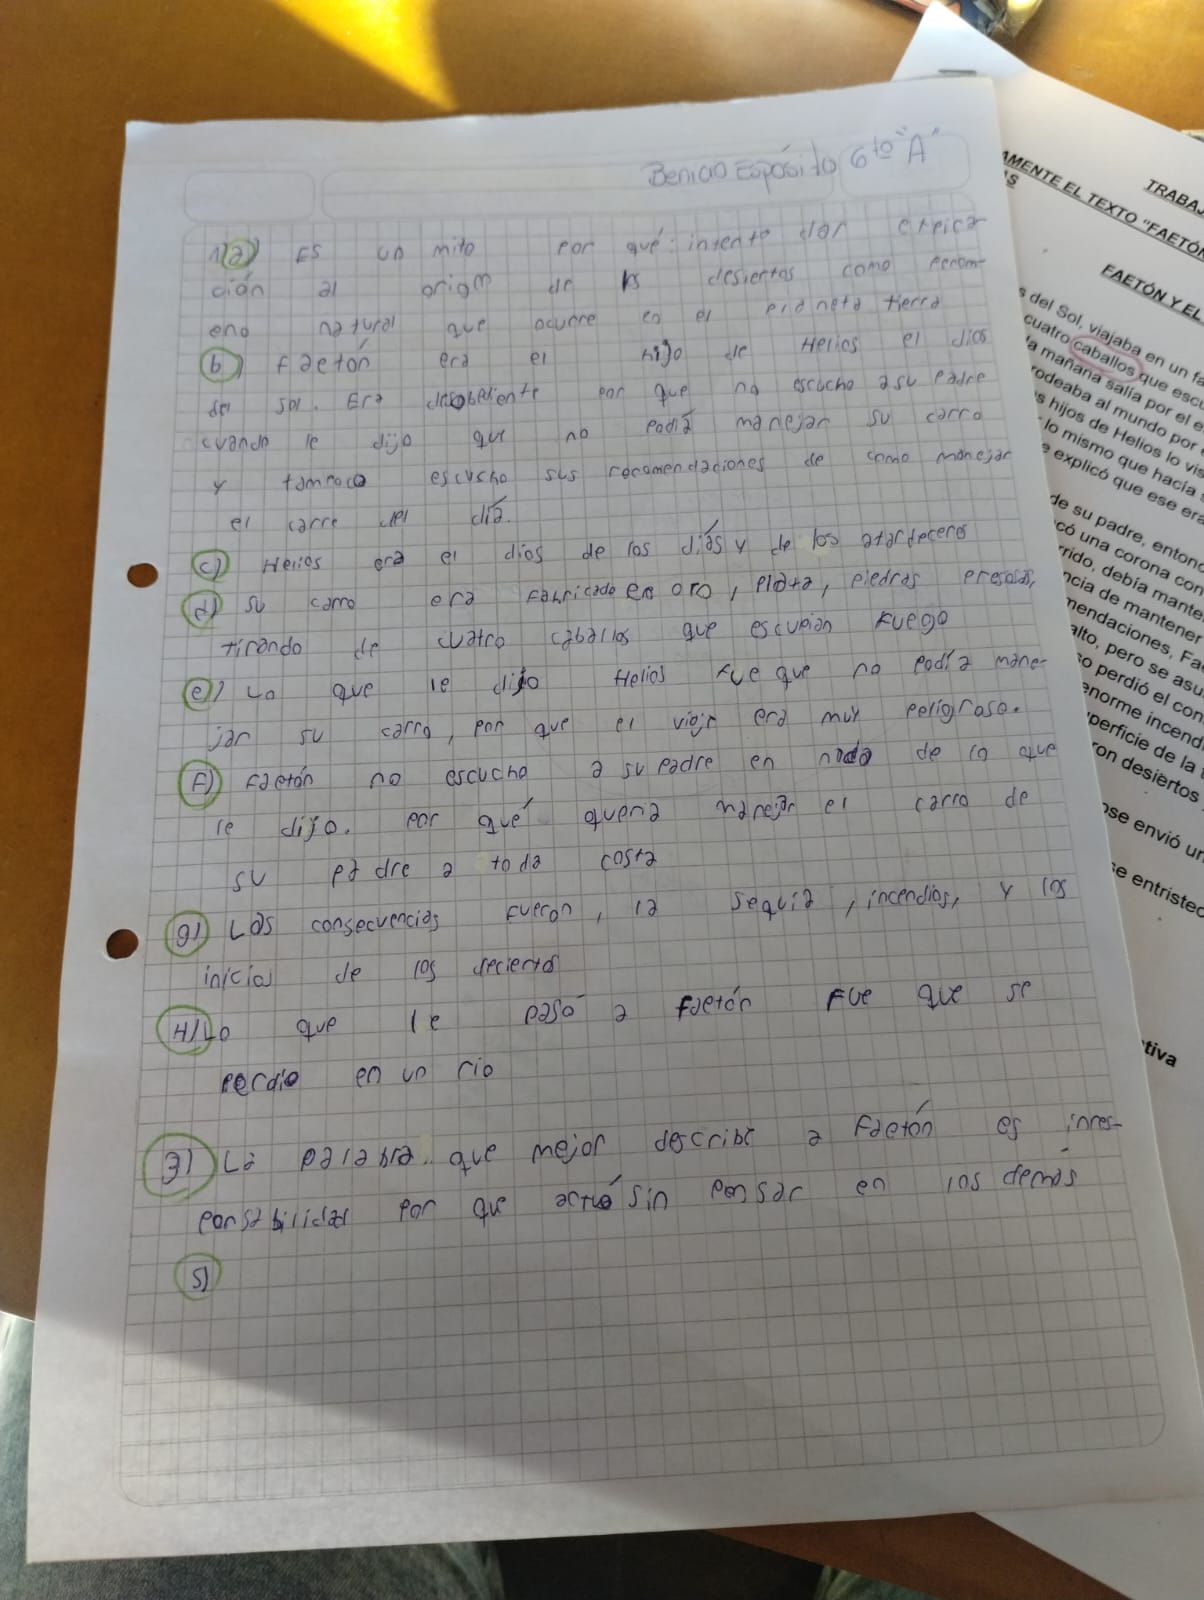 Benicio Espósito 6to "A"
1) a) Es un mito por qué intenta dar explica-
ción al origen de los desiertos como fenom-
eno natural que ocurre en el planeta tierra
b) Faetón era el hijo de Helios el dios
del sol. Era desobediente por que no escucho a su padre
cuando le dijo que no podía manejar su carro
y tampoco escucho sus recomendaciones de como manejar
el carro del día.
c) Helios era el dios de los días y de los atardeceres
d) su carro era fabricado en oro, plata, piedras presosas,
tirando de cuatro caballos que escupian fuego
e) Lo que le dijo Helios fue que no podía mane-
jar su carro, por que el viaje era muy peligroso.
F) Faetón no escucho a su padre en nada de lo que
le dijo. Por qué queria manejar el carro de
su padre a toda costa
g) Las consecuencias fueron, la sequia, incendios, y los
inicios de los decientos
H) Lo que le pasó a Faetón fue que se
perdio en un rio
3) La palabra que mejor describe a Faetón es irres-
ponsabilidad por que actuó sin pensar en los demás
5)
TRABAJ
AMENTE EL TEXTO "FAETÓN
AS
FAETÓN Y EL
s del Sol, viajaba en un fa
cuatro caballos que escu
la mañana salía por el e
rodeaba al mundo por
s hijos de Helios lo vis
lo mismo que hacía s
e explicó que ese era
de su padre, entonc
có una corona con
rrido, debía mante
ncia de mantener
mendaciones, Fae
alto, pero se asu
so perdió el con
enorme incendi
perficie de la t
ron desiertos
ose envió un
se entristec
tiva